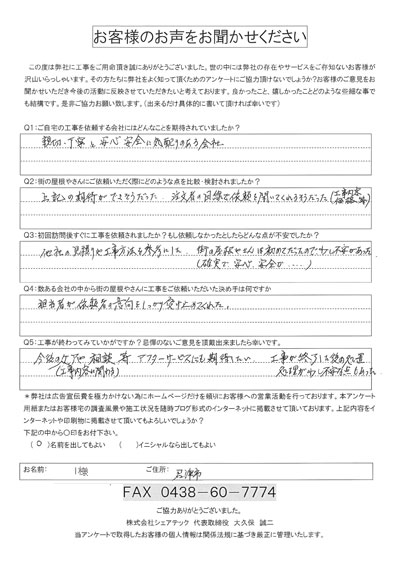 お客様のお声をお聞かせください
この度は弊社に工事をご用命頂き誠にありがとうございました。世の中には弊社の存在やサービスをご存知ないお客様が
沢山いらっしゃいます。その方たちに弊社をよく知って頂くためのアンケートにご協力頂けないでしょうか?お客様のご意見をお
聞かせいただき今後の活動に反映させていただきたいと考えております。良かったこと、嬉しかったことどのような些細な事で
も結構です。是非ご協力お願い致します。(出来るだけ具体的に書いて頂ければ幸いです)
Q1:ご自宅の工事を依頼する会社にはどんなことを期待されていましたか?
親切・丁寧 安心 安全に気配りのある会社
Q2:街の屋根やさんにご依頼いただく際にどのような点を比較・検討されましたか?
上記の期待ができそうだった 注文者の目線で依頼を聞いてくれそうだった (工事内容 価格 等)
Q3:初回訪問後すぐに工事を依頼されましたか?もし依頼しなかったとしたらどんな点が不安でしたか?
他社の見積りや工事方法を参考にした 街の屋根やさんは初めてだったので少し不安があった
(確実で 安心 安全で....)
Q4:数ある会社の中から街の屋根やさんにご依頼いただいた決め手は何ですか
担当者が依頼者の意向をしっかり くれた。
Q5:工事が終わってみていかがですか?忌憚のないご意見を頂戴出来ましたら幸いです。
今後のケアや 相談 等 アフターサービスにも期待したい 工事が終了した後の
(工事内容に関わる) 処理が少し不安な点もあった
*弊社は広告宣伝費を極力かけない為にホームページだけを頼りにお客様への営業活動を行っております。本アンケート
用紙またはお客様宅の調査風景や施工状況を随時ブログ形式のインターネットに掲載させて頂いております。上記内容をイ
ンターネットや印刷物に掲載させて頂いてもよろしいでしょうか?
下記の中から〇印をお付下さい。
(○)名前を出してもよい ( )イニシャルなら出してもよい
お名前: I 様 ご住所: 沼津市
FAX 0438-60-7774
ご協力ありがとうございました。
株式会社シェアテック 代表取締役 大久保 誠二
当アンケートで取得したお客様の個人情報は関係法規に基づき厳正に管理いたします。